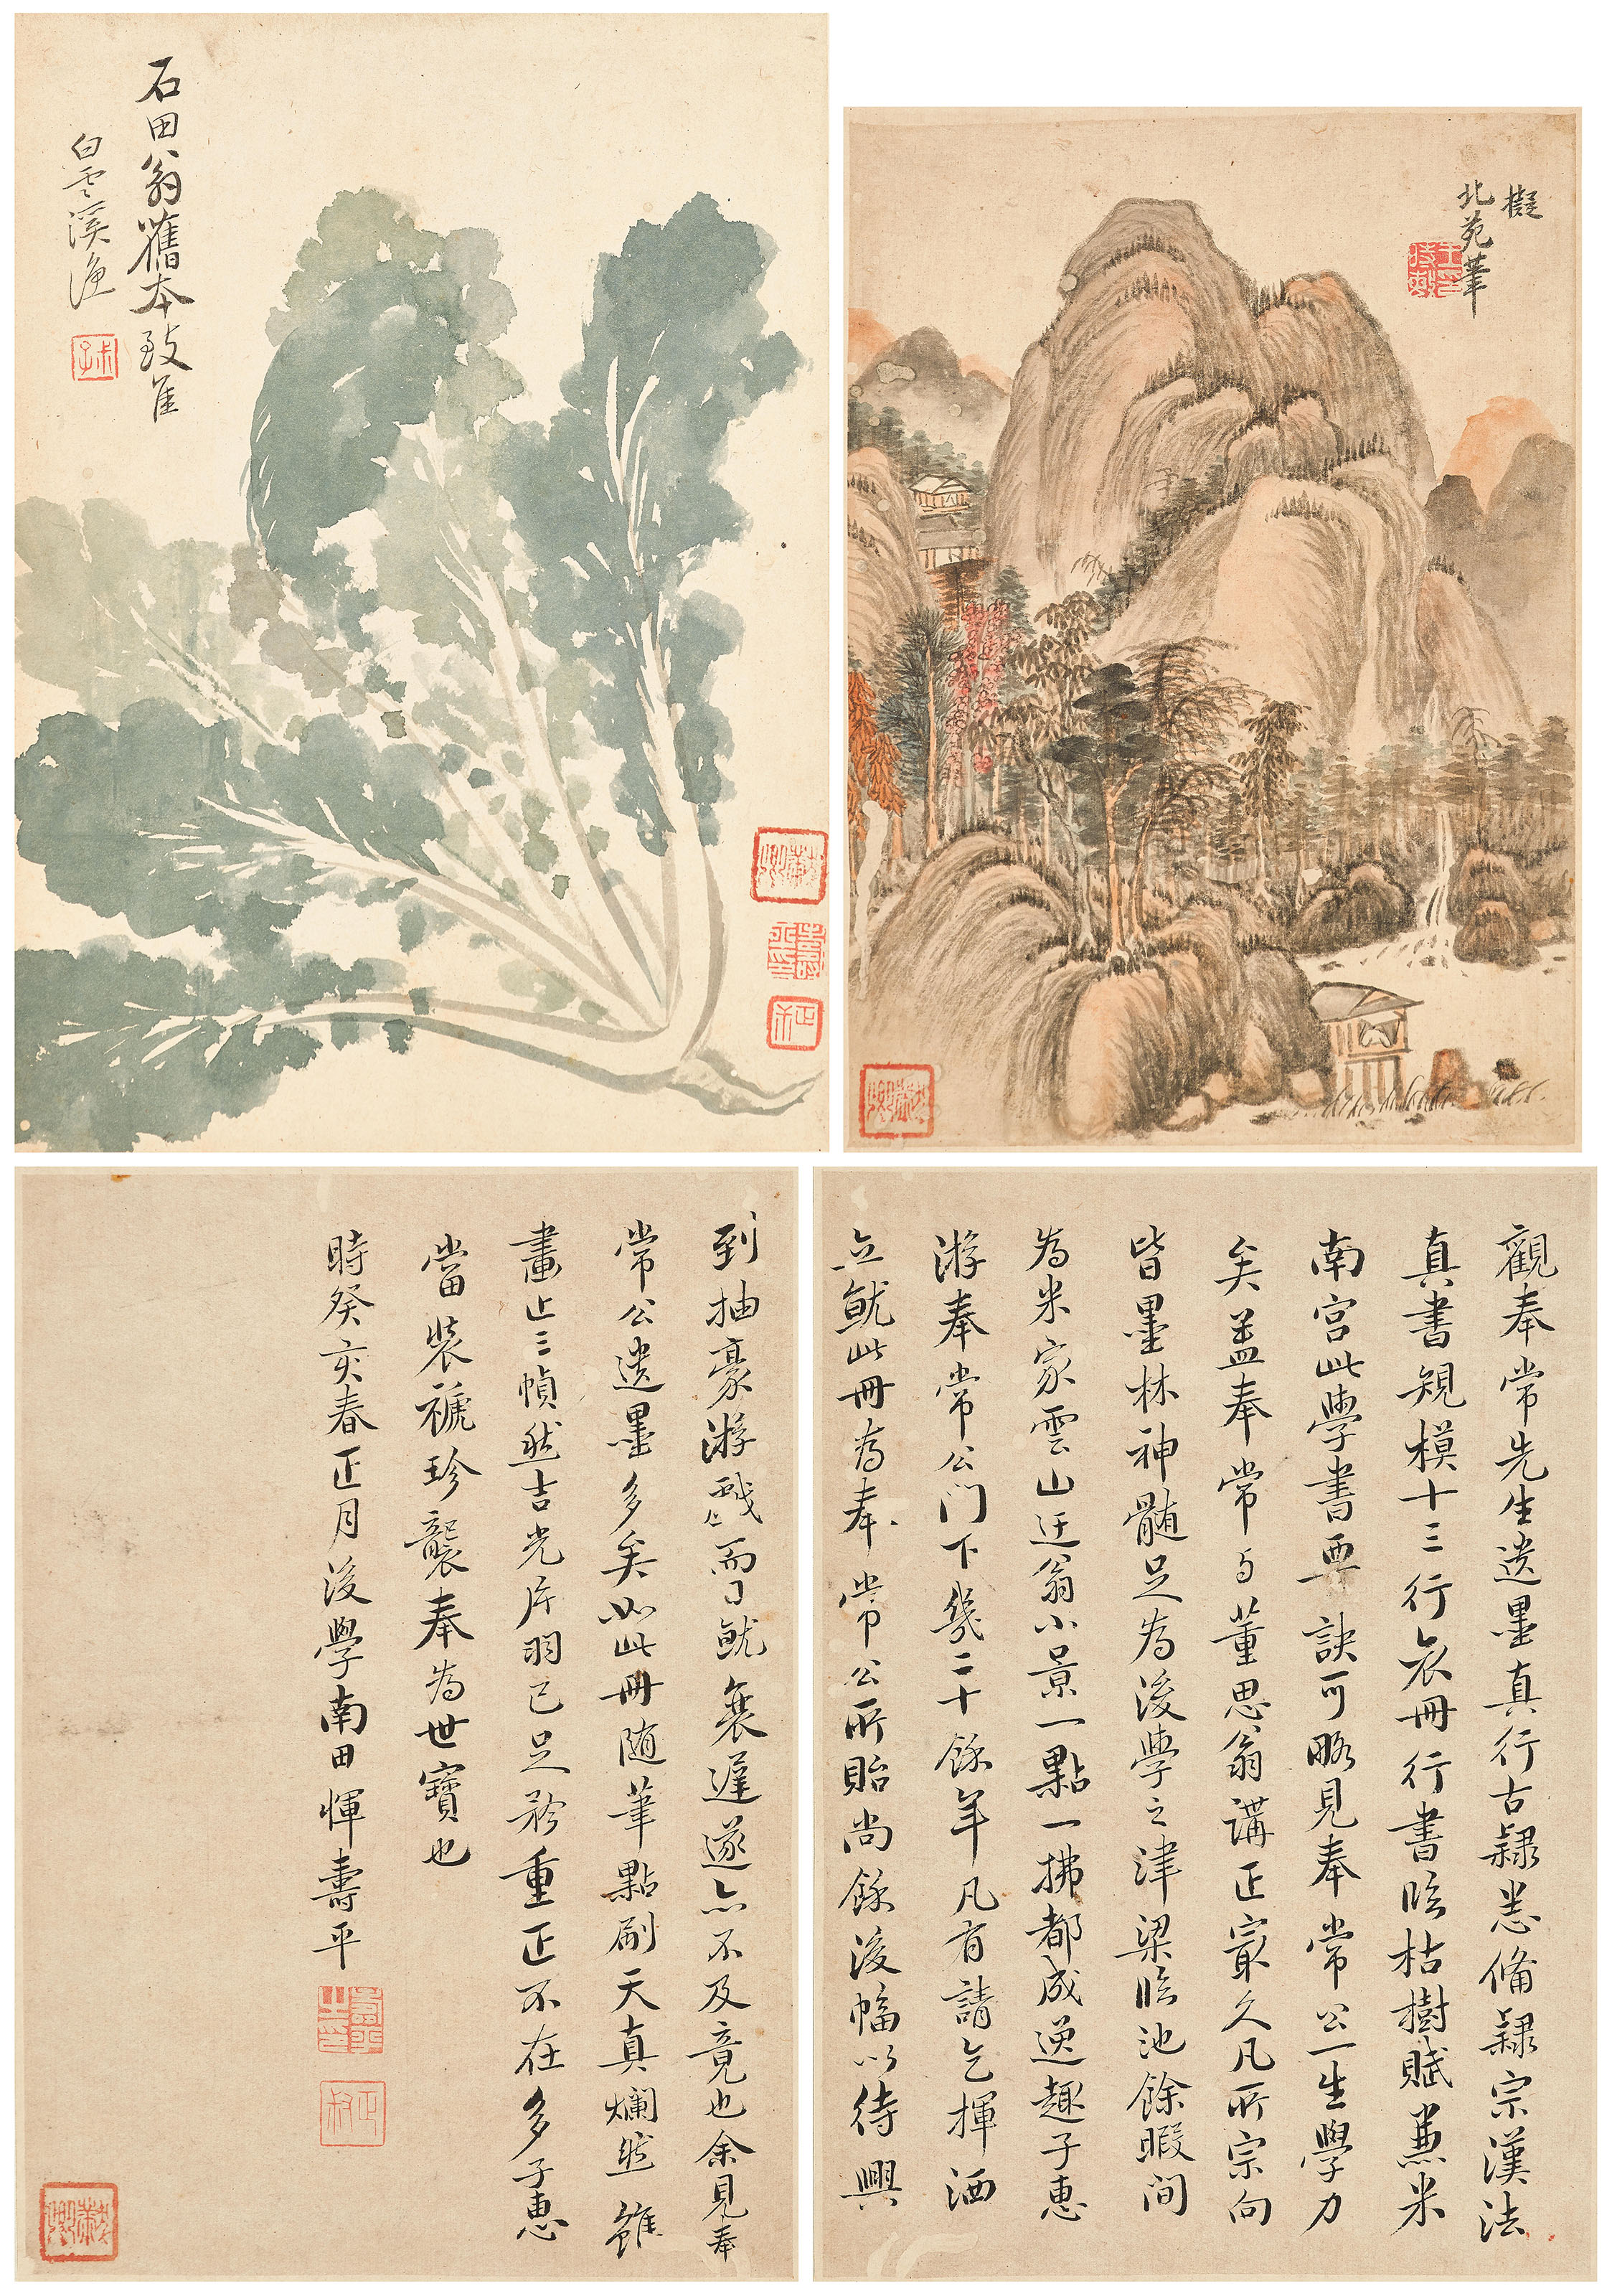 石田翁舊本致佳
白雲溪漁
擬
北苑筆
觀奉常先生遺墨真行古隸悉備隸宗漢法
真書規模十三行衣冊行書臨枯樹賦兼米
南宮此學書要訣可略見奉常公一生學力
矣蓋奉常与董思翁講正最久凡所宗向
皆墨林神髓足為後學之津梁臨池餘暇間
為米家雲山迂翁小景一點一拂都成逸趣子惠
游奉常公门下幾二十餘年凡有請乞揮洒
立就此冊為奉常公所貽尚餘後幅以待興
到抽豪游戲而日就衰遲遂亦不及竟也余見奉
常公遺墨多矣如此冊随筆點刷天真爛然雖
畫止三幀然吉光片羽已足矜重正不在多子惠
當裝褫珍襲奉為世寶也
時癸亥春正月後學南田惲壽平